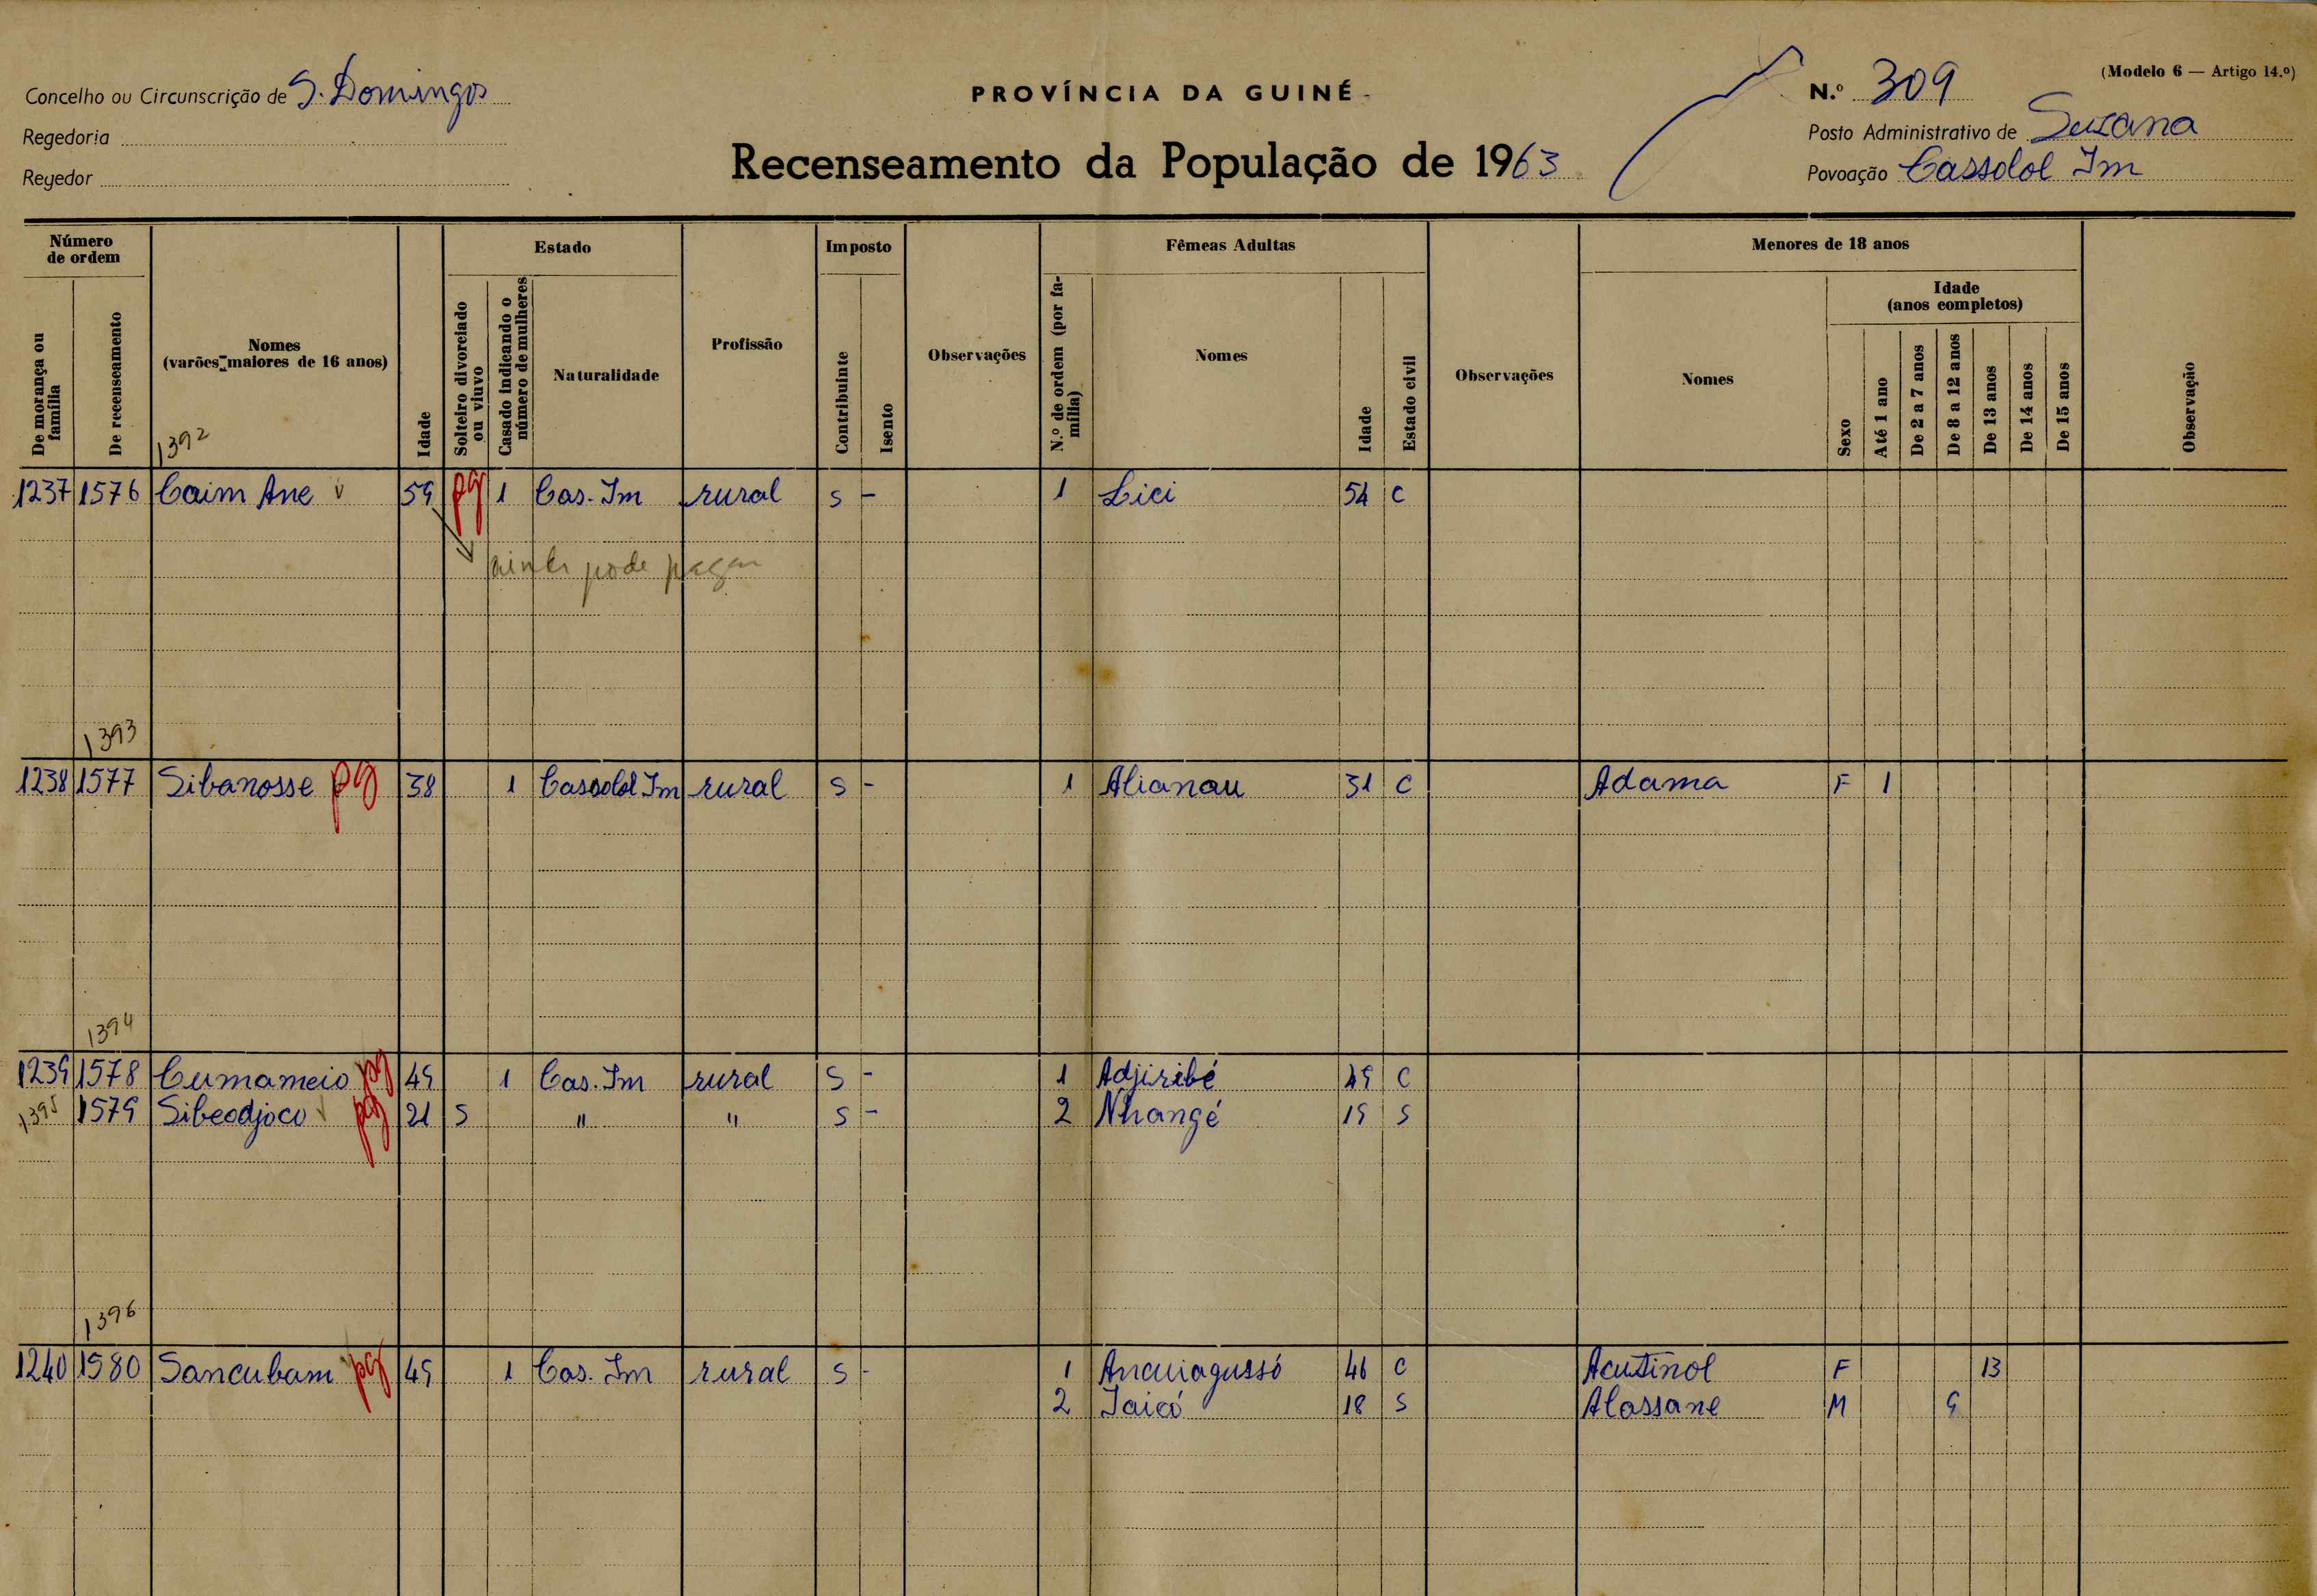 (Modelo 6 — Artigo 14.º)
Concelho ou Circunscrição de S. Domingos
PROVÍNCIA DA GUINÉ
N.º 309
Regedoria
Posto Administrativo de Suzana
Recenseamento da População de 1963
Regedor
Povoação Cassolol Im
Número de ordem
Estado
Imposto
Fêmeas Adultas
Menores de 18 anos
De morança ou família
De recenseamento
Nomes
(varões maiores de 16 anos)
Idade
Solteiro divorciado ou viuvo
Casado indicando o número de mulheres
Naturalidade
Profissão
Contribuinte
Isento
Observações
N.º de ordem (por família)
Nomes
Idade
Estado civil
Observações
Nomes
Sexo
Idade
(anos completos)
Até 1 ano
De 2 a 7 anos
De 8 a 12 anos
De 13 anos
De 14 anos
De 15 anos
Observação
1392
1237 1576 Caim Ane v 59 pg 1 Cas. Im rural s - 1 Lici 54 C
ainda pode pagar
1393
1238 1577 Sibanosse pg 38 1 Cassolol Im rural s - 1 Alianau 31 C Adama F 1
1394
1239 1578 Cumameio pg 49 1 Cas. Im rural s - 1 Adjiribé 49 C
1395 1579 Sibeodjoco v pg 21 S " " s - 2 Nhangé 19 S
1396
1240 1580 Sancubam pg 49 1 Cas. Im rural s - 1 Ancuiagussó 46 C Acutinol F 13
2 Jaicó 18 S Alassane M 9